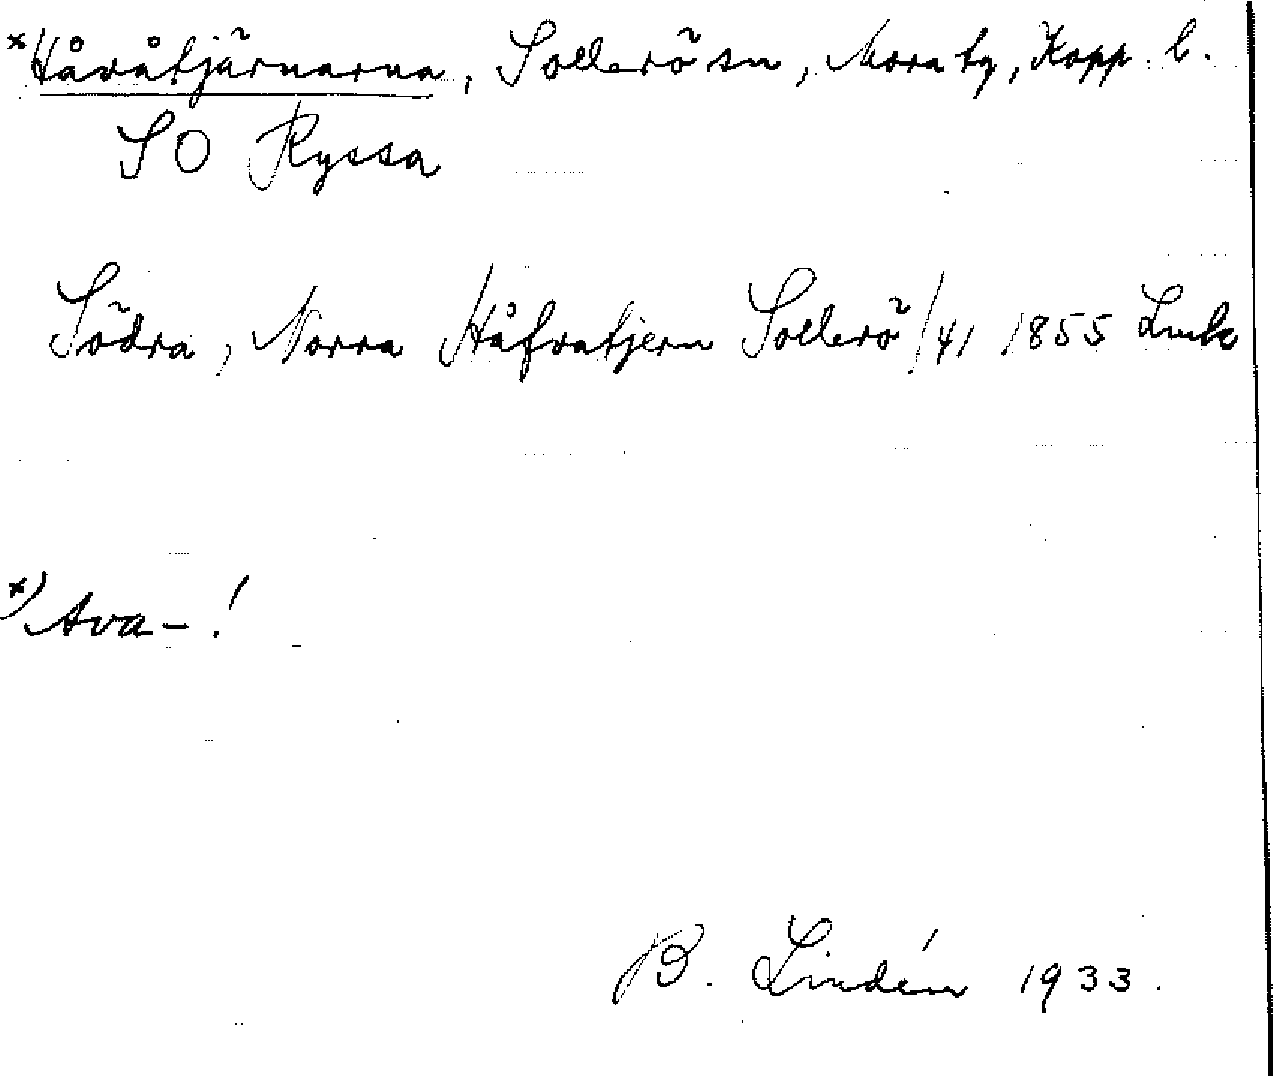 x Håvåtjärnarna, Sollerö sn, Mora tg, Kopp. l.
SO Ryssa
Södra, Norra Håfvatjern Sollerö /41 1855 Lmk
x) Ava- !
B. Lindén 1933.